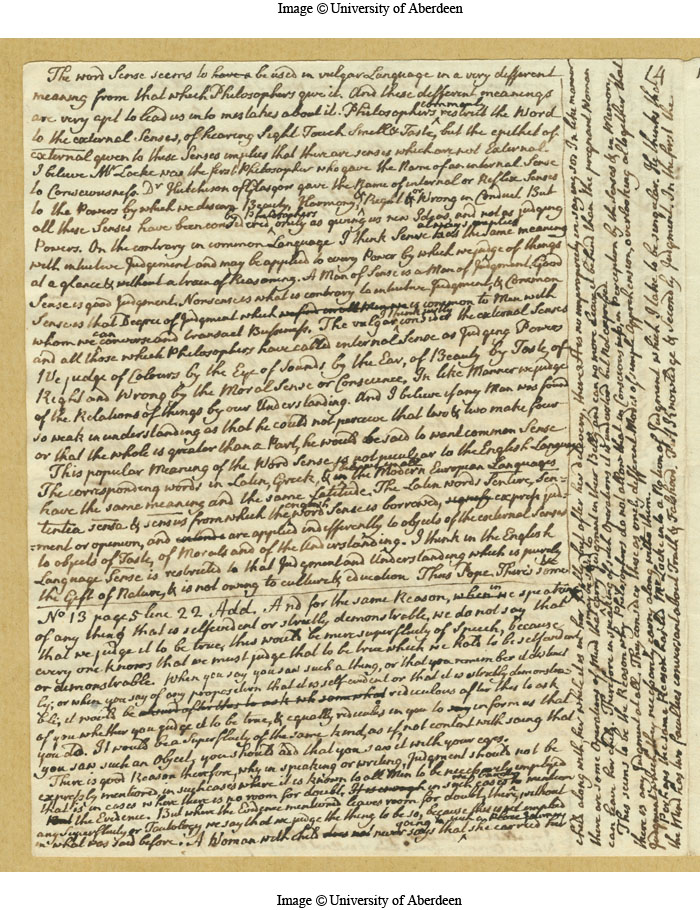 Image © University of Aberdeen
The word Sense seems to be used in vulgar Language in a very different
meaning from that which Philosophers give it. And these different meanings
are very apt to lead us into mistakes about it. Philosophers commonly restrict the Word
to the external Senses, of hearing Sight Touch Smell & Taste, but the epithet of
external given to these Senses implies that there are senses which are not External.
I believe Mr Locke was the first Philosopher who gave the Name of an internal Sense
to Consciousness. Dr Hutchison of Glasgow gave the Name of internal or Reflex Senses
to the Powers by which we discern Beauty, Harmony, & Right or Wrong in Conduct But
all these Senses have been considered by Philosophers only as giving us new Ideas, and not as judging
Powers. On the contrary in common Language I think Sense always the same meaning
with intuitive Judgement and may be applied to every Power by which we judge of things
at a glance & without a train of Reasoning. A Man of Sense is a Man of Judgment, Good
Sense is good Judgment. Nonsense is what is contrary to intuitive Judgment, & Common
Sense is that Degree of Judgment which is common to Men with
whom we can converse and transact Business. The vulgar I think justly consider the external Senses
and all those which Philosophers have called internal Sense as Judging Powers
We judge of Colours by the Eye of Sounds by the Ear, of Beauty by Taste, of
Right and Wrong by the Moral Sense or Conscience, In like Manner we judge
of the Relations of things by our Understanding. And I believe if any Man was found
so weak in understanding as that he could not perceive that two & two make four
or that the whole is greater than a Part, he would be said to want common Sense.
This popular Meaning of the Word Sense is not peculiar to the English Language
The corresponding words in Latin, Greek, & in the Modern European Languages
have the same meaning and the same Latitude. The Latin words Sentire, Sen-
tentia sensa & sensus from which the English word Sense is borrowed, express judg-
ment or opinion, and are applied indifferently to objects of the external Senses
to objects of Taste, of Morals and of the Understanding. I think in the English
Language Sense is restricted to that Judgment and Understanding which is purely
the Gift of Nature, & is not owing to culture & education Thus Pope. There's some
No 13 page 5 line 22. Add. And for the same Reason, when in speaking
of any thing that is selfevident or strictly demonstrable, we do not say that
that we judge it to be true, this would be mere superfluity of Speech, because
every one knows that we must judge that to be true which we hold to be selfevident
or demonstrable. When you say you saw such a thing, or that you remember it distinct
ly; or when you say of any proposition that it is selfevident or that it is strictly demonstra-
ble, it would be rediculous after this to ask
of you whether you judge it to be true, & equally ridiculous in you to inform us that
you do. It would be a Superfluity of the same kind, as if, not content with saying that
you saw such an Object, you should add that you saw it with your eyes.
There is good Reason therefore, why in speaking or writing, Judgment should not be
expressly mentioned in such cases where it is known to all Men to be necessarily implied
That is in cases where there is no room for doubt, in such mention
the Evidence. But where the Evidence mentioned leaves room for doubt, there, without
any Superfluity or Tautology we say that we judge the thing to be so, because this is not implied
in what was said before. A Woman with child never says that she carried her
child along with her while it is in her belly but after her delivery,
there are some Operations of Mind that carry Judgment in their Belly, and can no more leave it behind than the pregnant Woman
can leave her child. Therefore in speaking of such Operations it is understood but Not expressed
This seems to be the Reason why Philosophers do not allow that in Consciousness, in Perception by the Senses & in Memory
there is any Judgment at all. They consider these as only different Modes of simple Apprehension, overlooking altogether that
Judgment which they necessarily carry along with them.
Perhaps the same Reason has led Mr Locke into a Notion of Judgment which I take to be singular. He thinks that
the Mind has two Faculties conversant about Truth & Falshood. First Knowledge & Secondly Judgment. In the first the
Image © University of Aberdeen